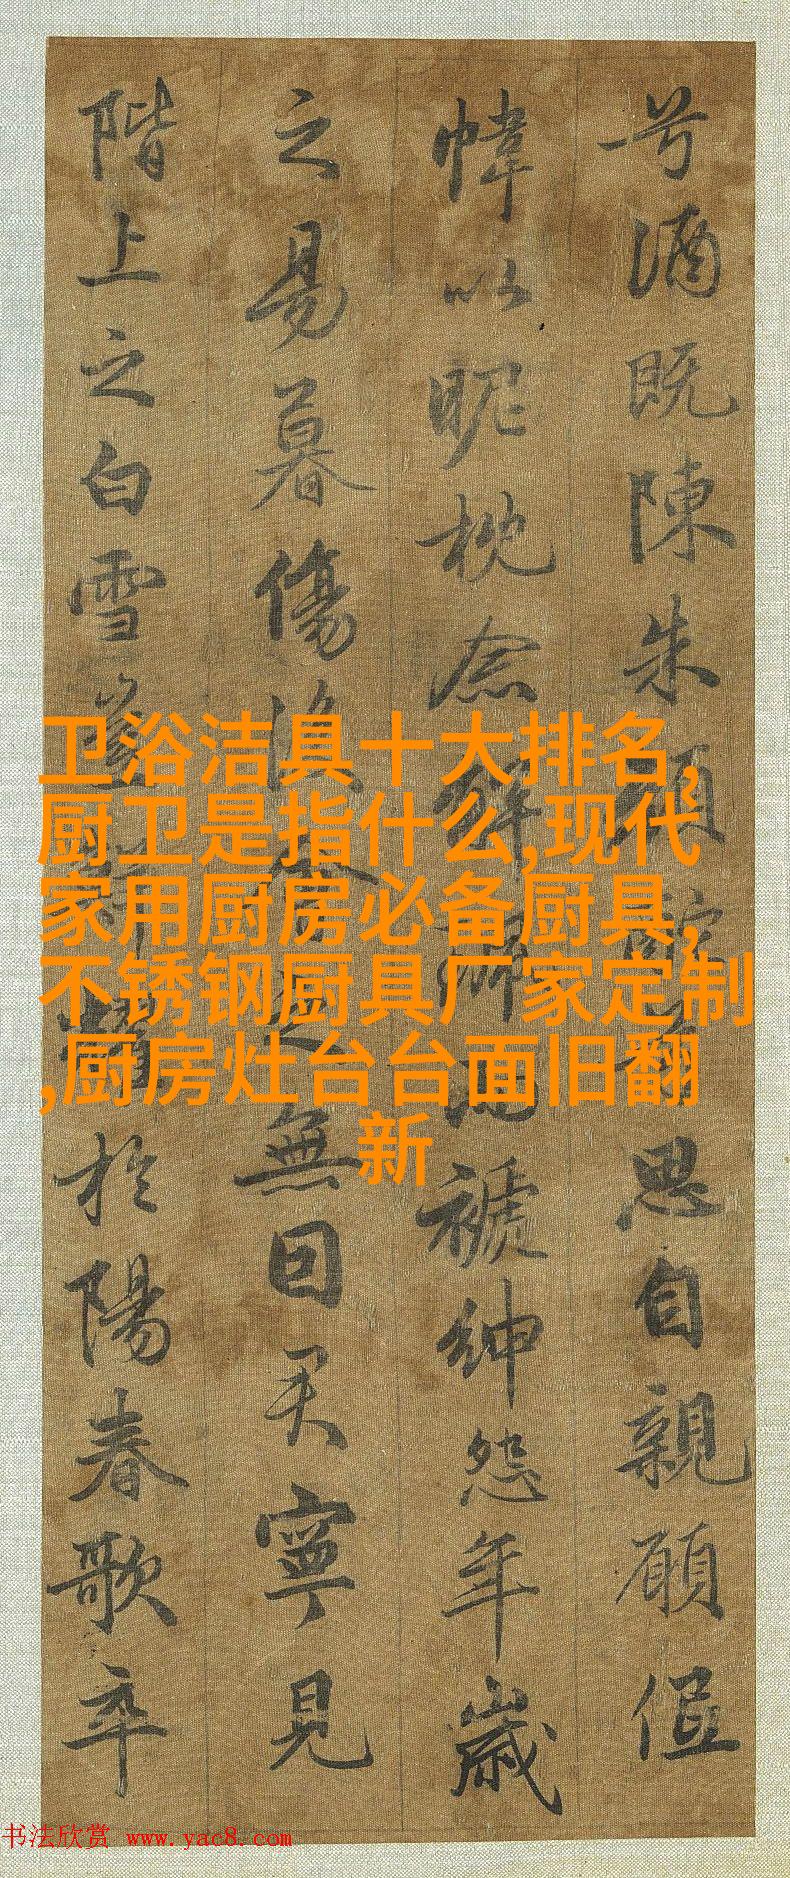 兮酒既陳朱顔酡兮思自親願低
幃以昵枕念解珮而褫紳怨年歲
之易暮傷後會之無因君寧見
階上之白雪豈鮮耀於陽春歌卒
卫浴洁具十大排名,
厨卫是指什么,现代
家用厨房必备厨具,
不锈钢厨具厂家定制
,厨房灶台台面旧翻
新
书法欣赏 www.yac8.com